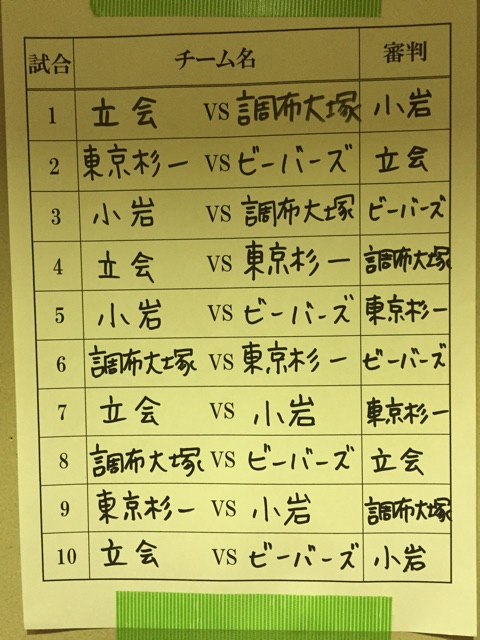 試合 チーム名 審判
1 立会 VS 調布大塚 小岩
2 東京杉一 VS ビーバーズ 立会
3 小岩 VS 調布大塚 ビーバーズ
4 立会 VS 東京杉一 調布大塚
5 小岩 VS ビーバーズ 東京杉一
6 調布大塚 VS 東京杉一 ビーバーズ
7 立会 VS 小岩 東京杉一
8 調布大塚 VS ビーバーズ 立会
9 東京杉一 VS 小岩 調布大塚
10 立会 VS ビーバーズ 小岩